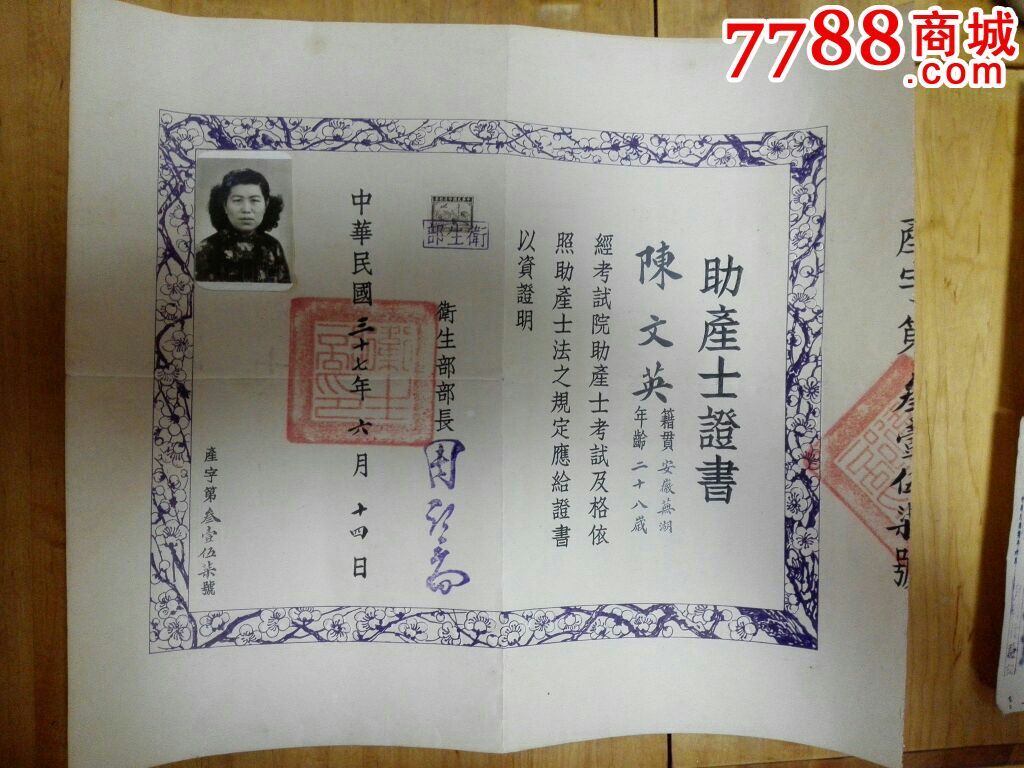 7788商城
.com
產字第叁壹伍柒號
助產士證書
陳文英
籍貫安徽蕪湖
年齡二十八歲
經考試院助產士考試及格依
照助產士法之規定應給證書
以資證明
衛生部
衛生部部長
中華民國三十七年六月十四日
產字第叁壹伍柒號